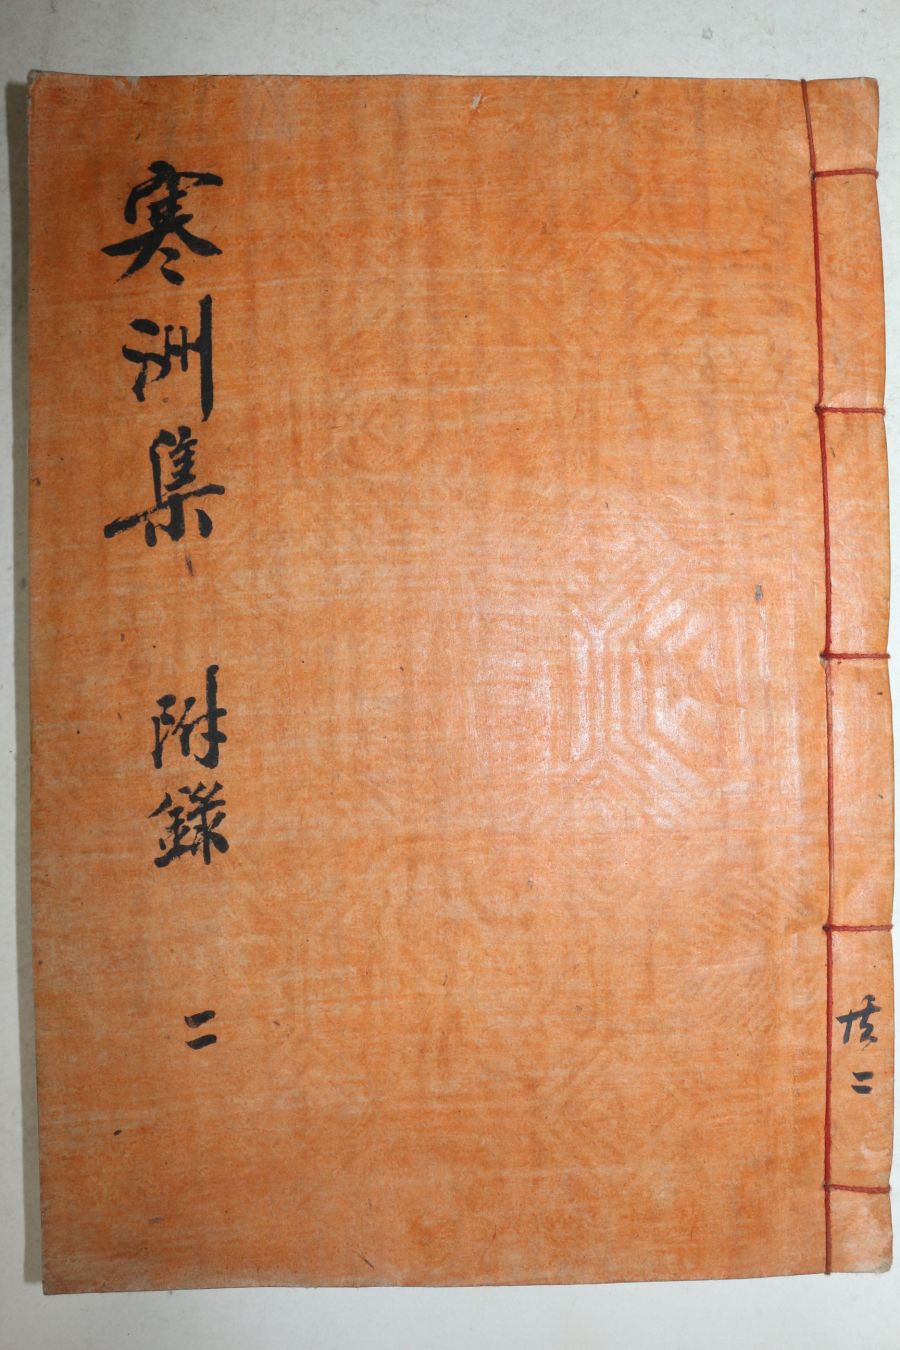 共二
寒洲集 附錄 二